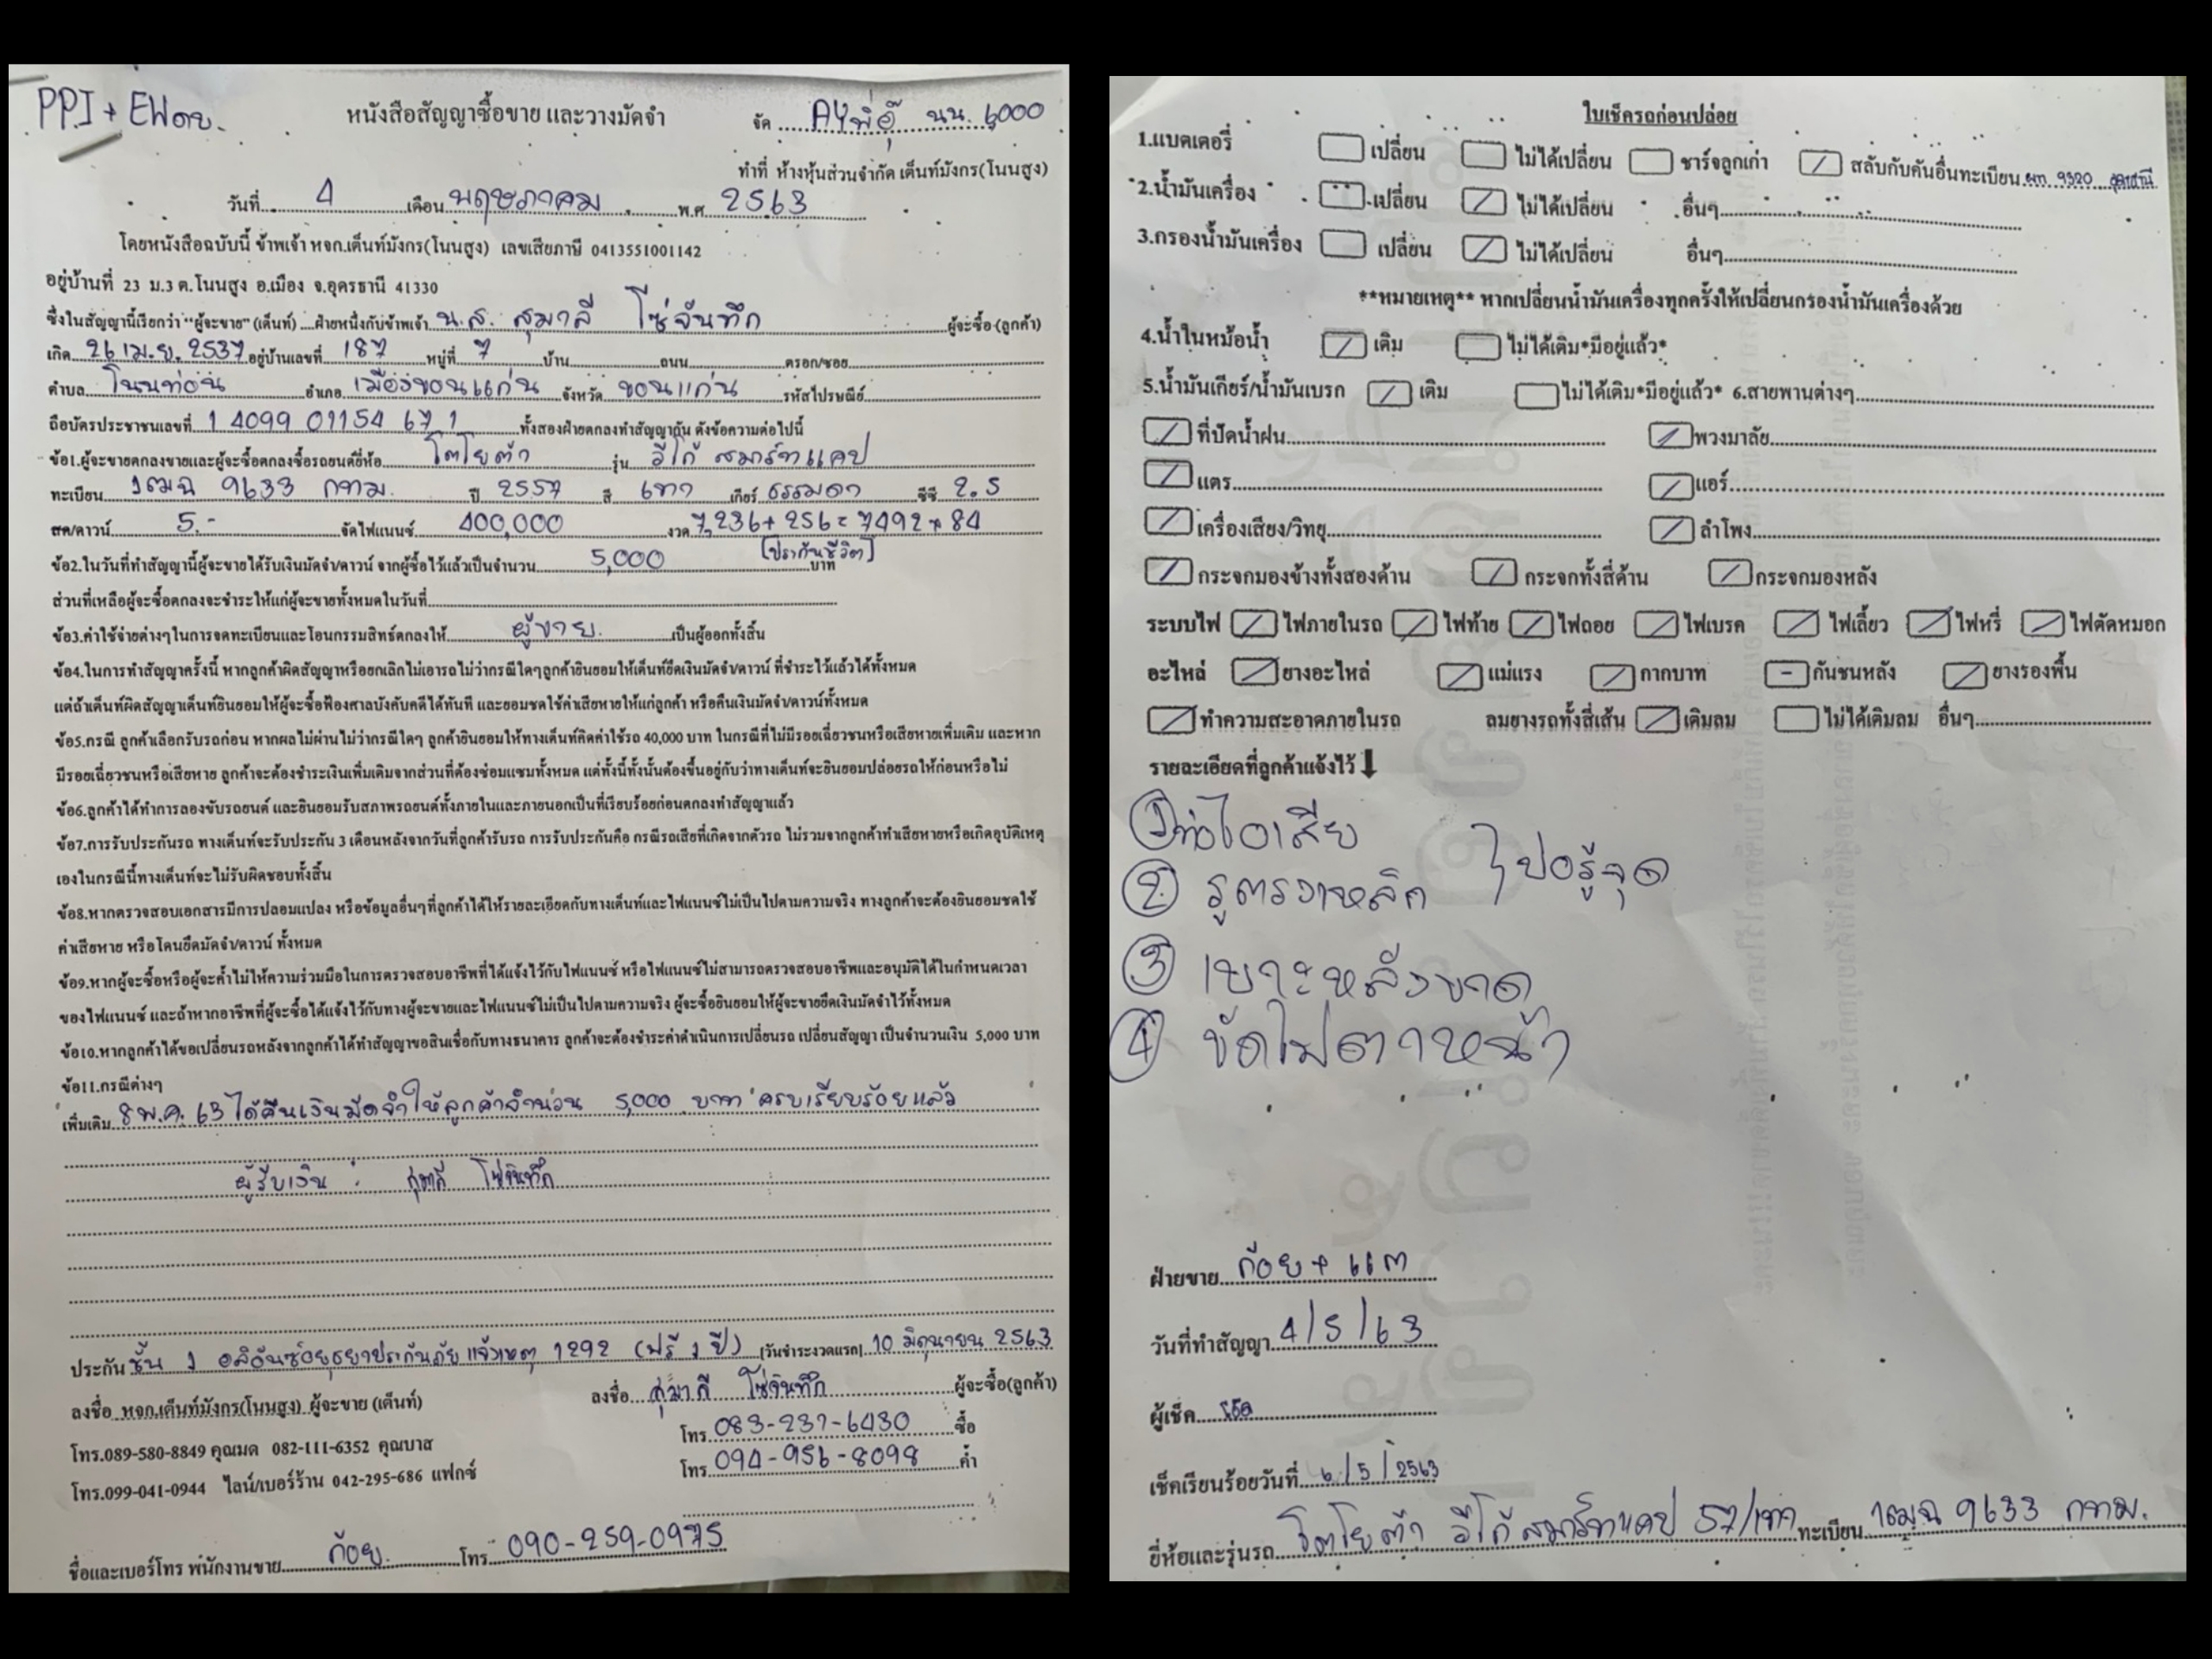 PPI + EWดข.
หนังสือสัญญาซื้อขาย และวางมัดจำ
จัด AYพี่อุ๊ นน. 6,000
ทำที่ ห้างหุ้นส่วนจำกัด เต็นท์มังกร(โนนสูง)
วันที่ 4 เดือน พฤษภาคม พ.ศ 2563
โดยหนังสือฉบับนี้ ข้าพเจ้า หจก.เต็นท์มังกร(โนนสูง) เลขเสียภาษี 0413551001142
อยู่บ้านที่ 23 ม.3 ต.โนนสูง อ.เมือง จ.อุดรธานี 41330
ซึ่งในสัญญานี้เรียกว่า "ผู้จะขาย" (เต็นท์) ....ฝ่ายหนึ่งกับข้าพเจ้า น.ส. สุมาลี โซ่จันทึก ผู้จะซื้อ (ลูกค้า)
เกิด 26 เม.ย. 2537 อยู่บ้านเลขที่ 187 หมู่ที่ 7 บ้าน ถนน ตรอก/ซอย
ตำบล โนนท่อน อำเภอ เมืองขอนแก่น จังหวัด ขอนแก่น รหัสไปรษณีย์
ถือบัตรประชาชนเลขที่ 1 4099 01154 67 1 ทั้งสองฝ่ายตกลงทำสัญญากัน ดังข้อความต่อไปนี้
ข้อ1.ผู้จะขายตกลงขายและผู้จะซื้อตกลงซื้อรถยนต์ยี่ห้อ โตโยต้า รุ่น วีโก้ สมาร์ทแคป
ทะเบียน 1ฒฉ 9633 กทม. ปี 2557 สี เทา เกียร์ ธรรมดา ซีซี 2.5
สด/ดาวน์ 5.- จัดไฟแนนซ์ 400,000 งวด 7,236 + 256 = 7492 * 84
[ประกันชีวิต]
ข้อ2.ในวันที่ทำสัญญานี้ผู้จะขายได้รับเงินมัดจำ/ดาวน์ จากผู้ซื้อไว้แล้วเป็นจำนวน 5,000 บาท
ส่วนที่เหลือผู้จะซื้อตกลงจะชำระให้แก่ผู้จะขายทั้งหมดในวันที่
ข้อ3.ค่าใช้จ่ายต่างๆในการจดทะเบียนและโอนกรรมสิทธิ์ตกลงให้ ผู้ขาย. เป็นผู้ออกทั้งสิ้น
ข้อ4.ในการทำสัญญาครั้งนี้ หากลูกค้าผิดสัญญาหรือยกเลิกไม่เอารถไม่ว่ากรณีใดๆลูกค้ายินยอมให้เต็นท์ยึดเงินมัดจำ/ดาวน์ ที่ชำระไว้แล้วได้ทั้งหมด
แต่ถ้าเต็นท์ผิดสัญญาเต็นท์ยินยอมให้ผู้จะซื้อฟ้องศาลบังคับคดีได้ทันที และยอมชดใช้ค่าเสียหายให้แก่ลูกค้า หรือคืนเงินมัดจำ/ดาวน์ทั้งหมด
ข้อ5.กรณี ลูกค้าเลือกรับรถก่อน หากผลไม่ผ่านไม่ว่ากรณีใดๆ ลูกค้ายินยอมให้ทางเต็นท์คิดค่าใช้รถ 40,000 บาท ในกรณีที่ไม่มีรอยเฉี่ยวชนหรือเสียหายเพิ่มเติม และหาก
มีรอยเฉี่ยวชนหรือเสียหาย ลูกค้าจะต้องชำระเงินเพิ่มเติมจากส่วนที่ต้องซ่อมแซมทั้งหมด แต่ทั้งนี้ทั้งนั้นต้องขึ้นอยู่กับว่าทางเต็นท์จะยินยอมปล่อยรถให้ก่อนหรือไม่
ข้อ6.ลูกค้าได้ทำการลองขับรถยนต์ และยินยอมรับสภาพรถยนต์ทั้งภายในและภายนอกเป็นที่เรียบร้อยก่อนตกลงทำสัญญาแล้ว
ข้อ7.การรับประกันรถ ทางเต็นท์จะรับประกัน 3 เดือนหลังจากวันที่ลูกค้ารับรถ การรับประกันคือ กรณีรถเสียที่เกิดจากตัวรถ ไม่รวมจากลูกค้าทำเสียหายหรือเกิดอุบัติเหตุ
เองในกรณีนี้ทางเต็นท์จะไม่รับผิดชอบทั้งสิ้น
ข้อ8.หากตรวจสอบเอกสารมีการปลอมแปลง หรือข้อมูลอื่นๆที่ลูกค้าได้ให้รายละเอียดกับทางเต็นท์และไฟแนนซ์ไม่เป็นไปตามความจริง ทางลูกค้าจะต้องยินยอมชดใช้
ค่าเสียหาย หรือโดนยึดมัดจำ/ดาวน์ ทั้งหมด
ข้อ9.หากผู้จะซื้อหรือผู้จะค้ำไม่ให้ความร่วมมือในการตรวจสอบอาชีพที่ได้แจ้งไว้กับไฟแนนซ์ หรือไฟแนนซ์ไม่สามารถตรวจสอบอาชีพและอนุมัติได้ในกำหนดเวลา
ของไฟแนนซ์ และถ้าหากอาชีพที่ผู้จะซื้อได้แจ้งไว้กับทางผู้จะขายและไฟแนนซ์ไม่เป็นไปตามความจริง ผู้จะซื้อยินยอมให้ผู้จะขายยึดเงินมัดจำไว้ทั้งหมด
ข้อ10.หากลูกค้าได้ขอเปลี่ยนรถหลังจากลูกค้าได้ทำสัญญาขอสินเชื่อกับทางธนาคาร ลูกค้าจะต้องชำระค่าดำเนินการเปลี่ยนรถ เปลี่ยนสัญญา เป็นจำนวนเงิน 5,000 บาท
ข้อ11.กรณีต่างๆ
เพิ่มเติม 8 พ.ค. 63 ได้คืนเงินมัดจำให้ลูกค้าจำนวน 5,000 บาท ครบเรียบร้อยแล้ว
ผู้รับเงิน : สุมาลี โซ่จันทึก
ประกัน ชั้น 1 อลิอันซ์อยุธยาประกันภัย แจ้งเหตุ 1292 (ฟรี 1 ปี) [วันชำระงวดแรก] 10 มิถุนายน 2563
ลงชื่อ หจก.เต็นท์มังกร(โนนสูง) ผู้จะขาย (เต็นท์) ลงชื่อ สุมาลี โซ่จันทึก ผู้จะซื้อ(ลูกค้า)
โทร.089-580-8849 คุณมด 082-111-6352 คุณบาส โทร 083-237-6430 ซื้อ
โทร.099-041-0944 ไลน์/เบอร์ร้าน 042-295-686 แฟกซ์ โทร 094-956-8098 ค้ำ
ชื่อและเบอร์โทร พนักงานขาย ก้อย. โทร 090-259-0975
ใบเช็ครถก่อนปล่อย
1.แบตเตอรี่ เปลี่ยน ไม่ได้เปลี่ยน ชาร์จลูกเก่า / สลับกับคันอื่นทะเบียน 9320 อุดรธานี
2.น้ำมันเครื่อง เปลี่ยน / ไม่ได้เปลี่ยน อื่นๆ
3.กรองน้ำมันเครื่อง เปลี่ยน / ไม่ได้เปลี่ยน อื่นๆ
**หมายเหตุ** หากเปลี่ยนน้ำมันเครื่องทุกครั้งให้เปลี่ยนกรองน้ำมันเครื่องด้วย
4.น้ำในหม้อน้ำ / เติม ไม่ได้เติม*มีอยู่แล้ว*
5.น้ำมันเกียร์/น้ำมันเบรก / เติม ไม่ได้เติม*มีอยู่แล้ว* 6.สายพานต่างๆ
/ ที่ปัดน้ำฝน / พวงมาลัย
/ แตร / แอร์
/ เครื่องเสียง/วิทยุ / ลำโพง
/ กระจกมองข้างทั้งสองด้าน / กระจกทั้งสี่ด้าน / กระจกมองหลัง
ระบบไฟ / ไฟภายในรถ / ไฟท้าย / ไฟถอย / ไฟเบรค / ไฟเลี้ยว / ไฟหรี่ / ไฟตัดหมอก
อะไหล่ / ยางอะไหล่ / แม่แรง / กากบาท - กันชนหลัง / ยางรองพื้น
/ ทำความสะอาดภายในรถ ลมยางรถทั้งสี่เส้น / เติมลม ไม่ได้เติมลม อื่นๆ
รายละเอียดที่ลูกค้าแจ้งไว้ ⬇
① ท่อไอเสีย
② รูตรงเหล็ก } ปอรู้จุด
③ เบาะหลังขาด
④ ขัดไฟตาหน้า
ฝ่ายขาย ก้อย +
วันที่ทำสัญญา 4/5/63
ผู้เช็ค
เช็คเรียนร้อยวันที่ 6/5/2563
ยี่ห้อและรุ่นรถ โตโยต้า วีโก้ สมาร์ทแคป 57/เทา ทะเบียน 1ฒฉ 9633 กทม.